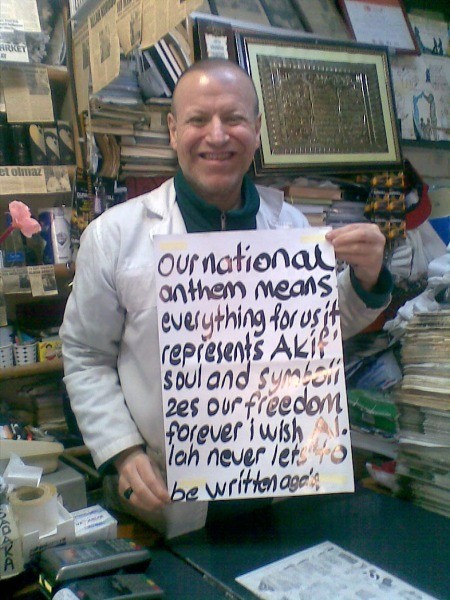 ARKET
olmaz
Our national
anthem means
everything for us it
represents Akif
soul and symboli
zes our freedom
forever i wish Al-
lah never lets to
be written again